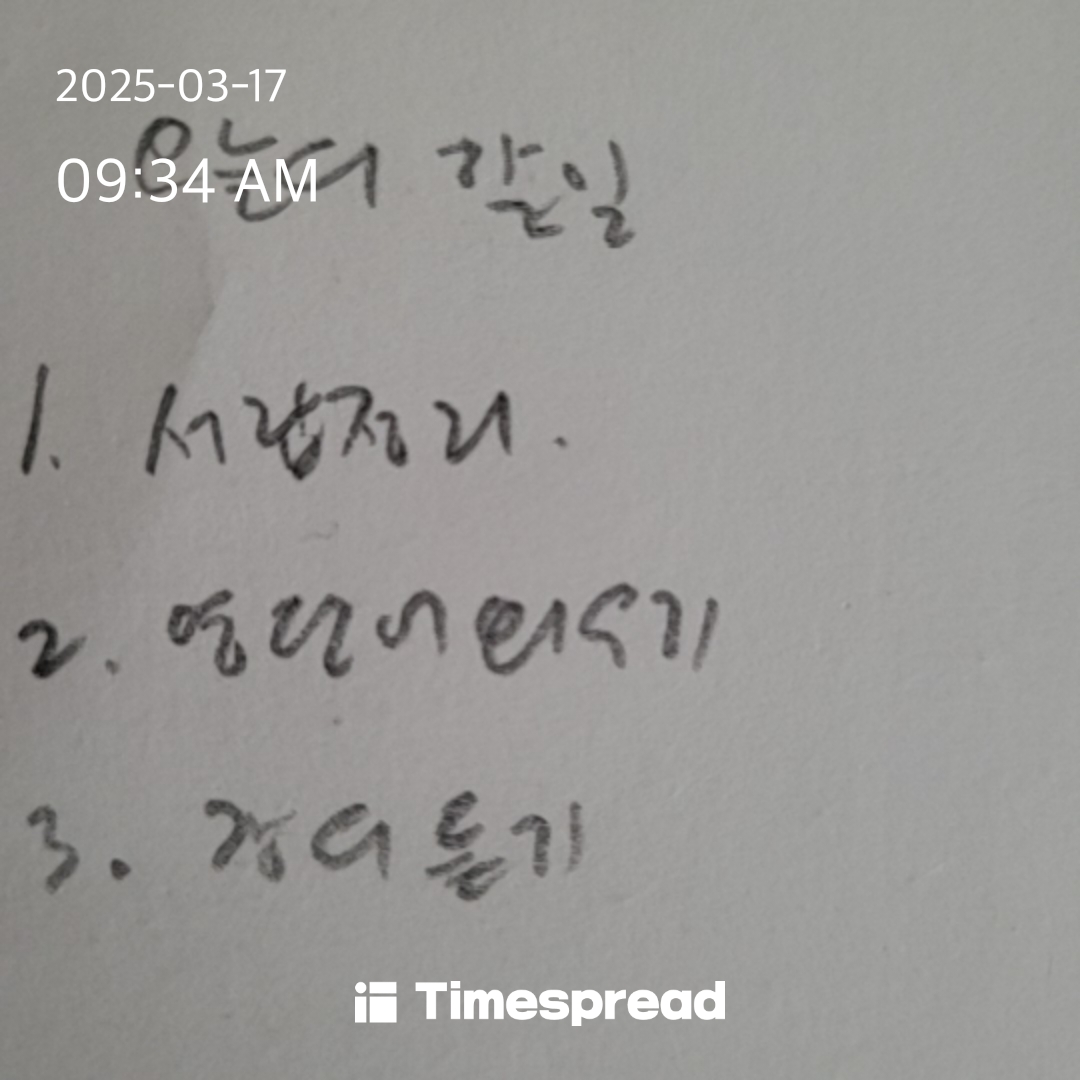 2025-03-17
오늘의 할일
09:34 AM
1. 서랍정리.
2. 영단어외우기
3. 강의듣기
Timespread